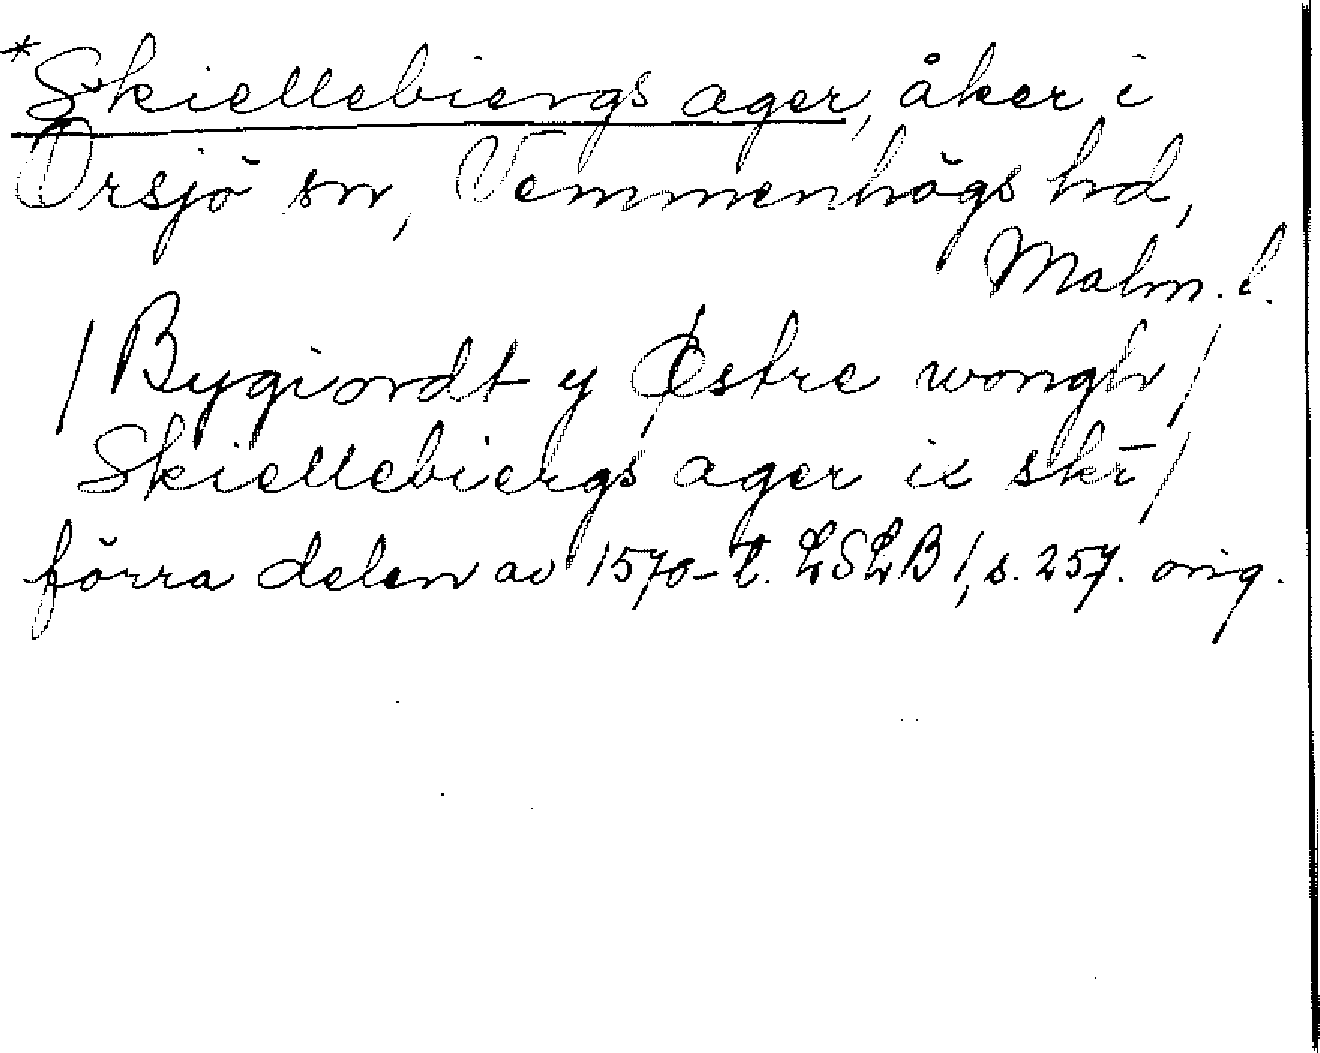 *Skiellebiergs ager, åker i
Örsjö sn, Vemmenhögs hd,
Malm. l.
/Bygiordt y Østre wongh/
Skiellebiergs ager ix skr̄/
förra delen av 1570-t. LSLB 1, s. 257. orig.